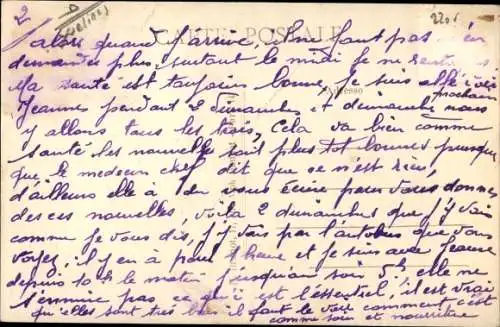 2
CARTE POSTALE
alors quand j'arrive, il ne faut pas
demander plus, surtout le midi je ne
Ma santé est toujours bonne, je suis allé voir
Adresse
Jeanne pendant 2 dimanches et dimanche prochain nous
y allons tous les trois, Cela va bien comme
santé les nouvelles sont plus tot bonnes puisque
que le medecin chef dit que ce n'est rien,
d'ailleurs elle a du vous écrire pour vous donner
des ces nouvelles, voila 2 dimanches que j'y vais
comme je vous dis, j'y vais par l'autobus que vous
voyez, il y en a pour 1 heure et je suis avec Jeanne
depuis 10 h le matin jusquau soir 5 h, elle ne
s'ennuie pas ce qui est l'essentiel, il est vrai
qu'elles sont très bien il faut le voir comment, c'est
comme soin et nourriture